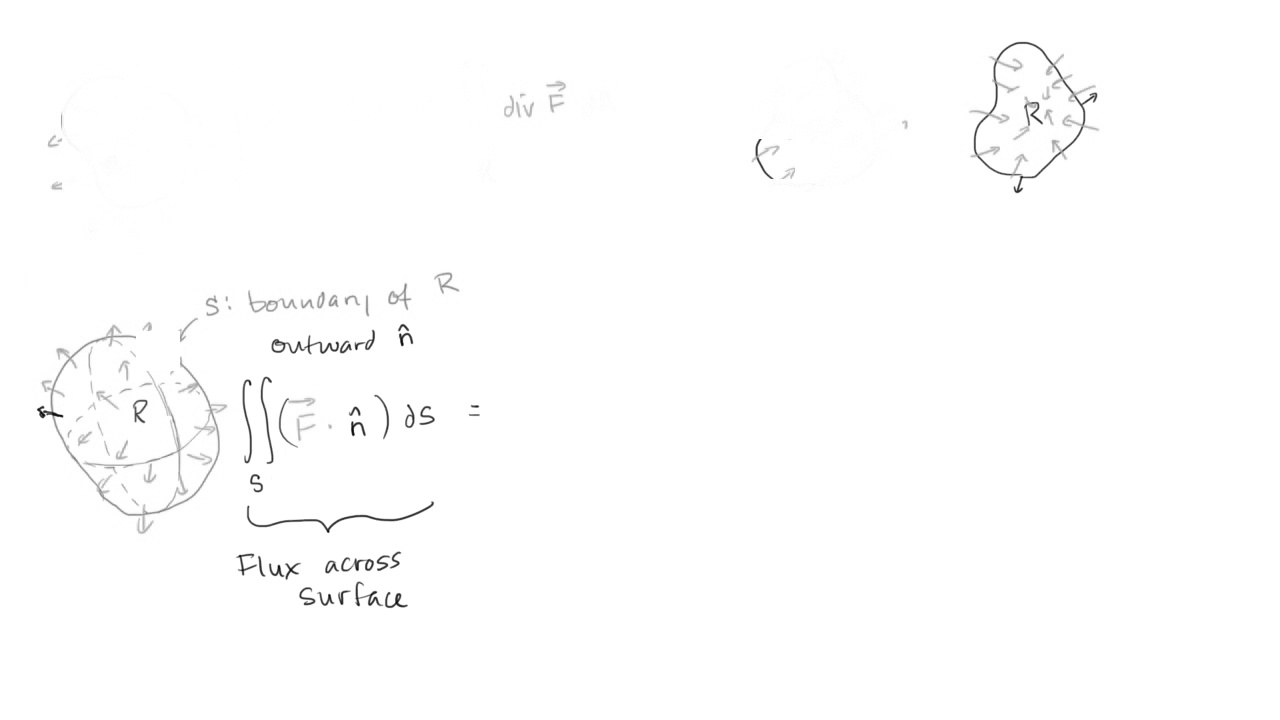 div F⃗
R
S: boundary of R
outward n̂
R
∬ (F⃗ · n̂) dS =
S
Flux across
surface